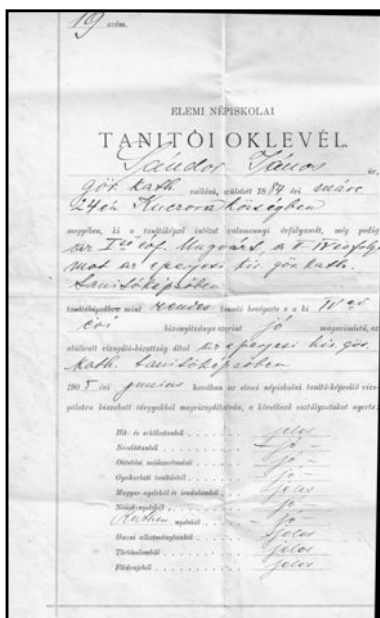 19 szám.
ELEMI NÉPISKOLAI
TANITÓI OKLEVÉL.
Sándor János úr,
gör. kath. vallású, született 1884 évi márc
24én Kuczora községben
megyében, ki a tanitóképző intézet valamennyi évfolyamát, még pedig
az I ső évf. Ungvárt, a II-IV évfolya
mot az eperjesi kir. gör. kath.
tanitóképzőben
tanitóképzőben mint rendes tanuló bevégezte s a ki IV ed
évi bizonyítványa szerint jó magaviseletű, az
alálirott vizsgáló-bizottság által az eperjesi kir. gör.
kath. tanitóképzőben
1905 évi junius havában az elemi népiskolai tanitó-képesitő vizs-
gálatra kiszabott tárgyakból megvizsgáltatván, a következő osztályzatokat nyerte:
Hit- és erkölcstanból jeles
Neveléstanból jó
Oktatási módszertanból jó
Gyakorlati tanításból jó
Magyar nyelvből és irodalomból jeles
Német nyelvből jó
Ruthen nyelvből jó
Hazai alkotmánytanból jeles
Történelemből jeles
Földrajzból jeles